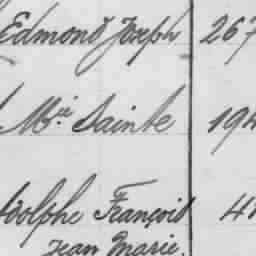 Edmond Joseph 267
Mie Sainte 194
Adolphe François 4
Jean Marie.